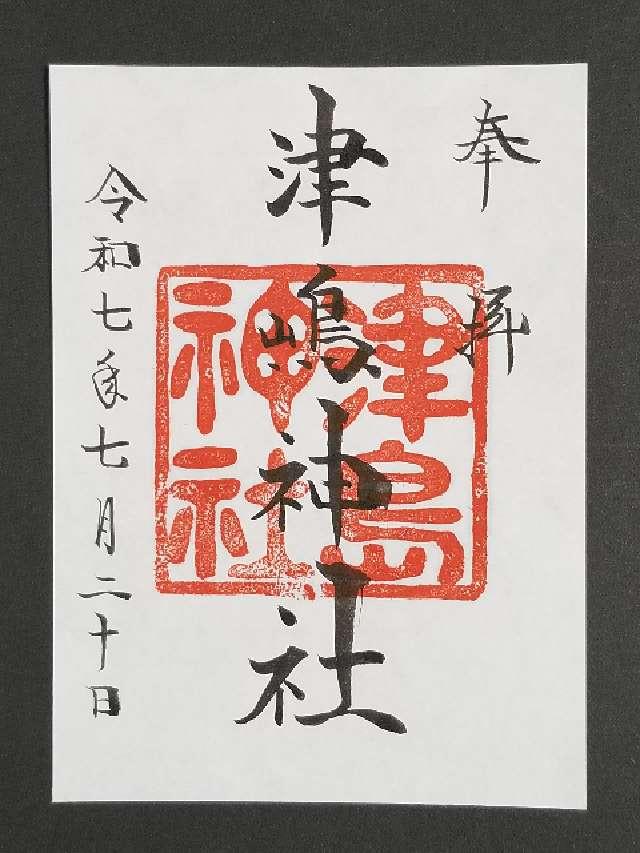 奉拝
津嶋神社
令和七年七月二十日
津島
神社